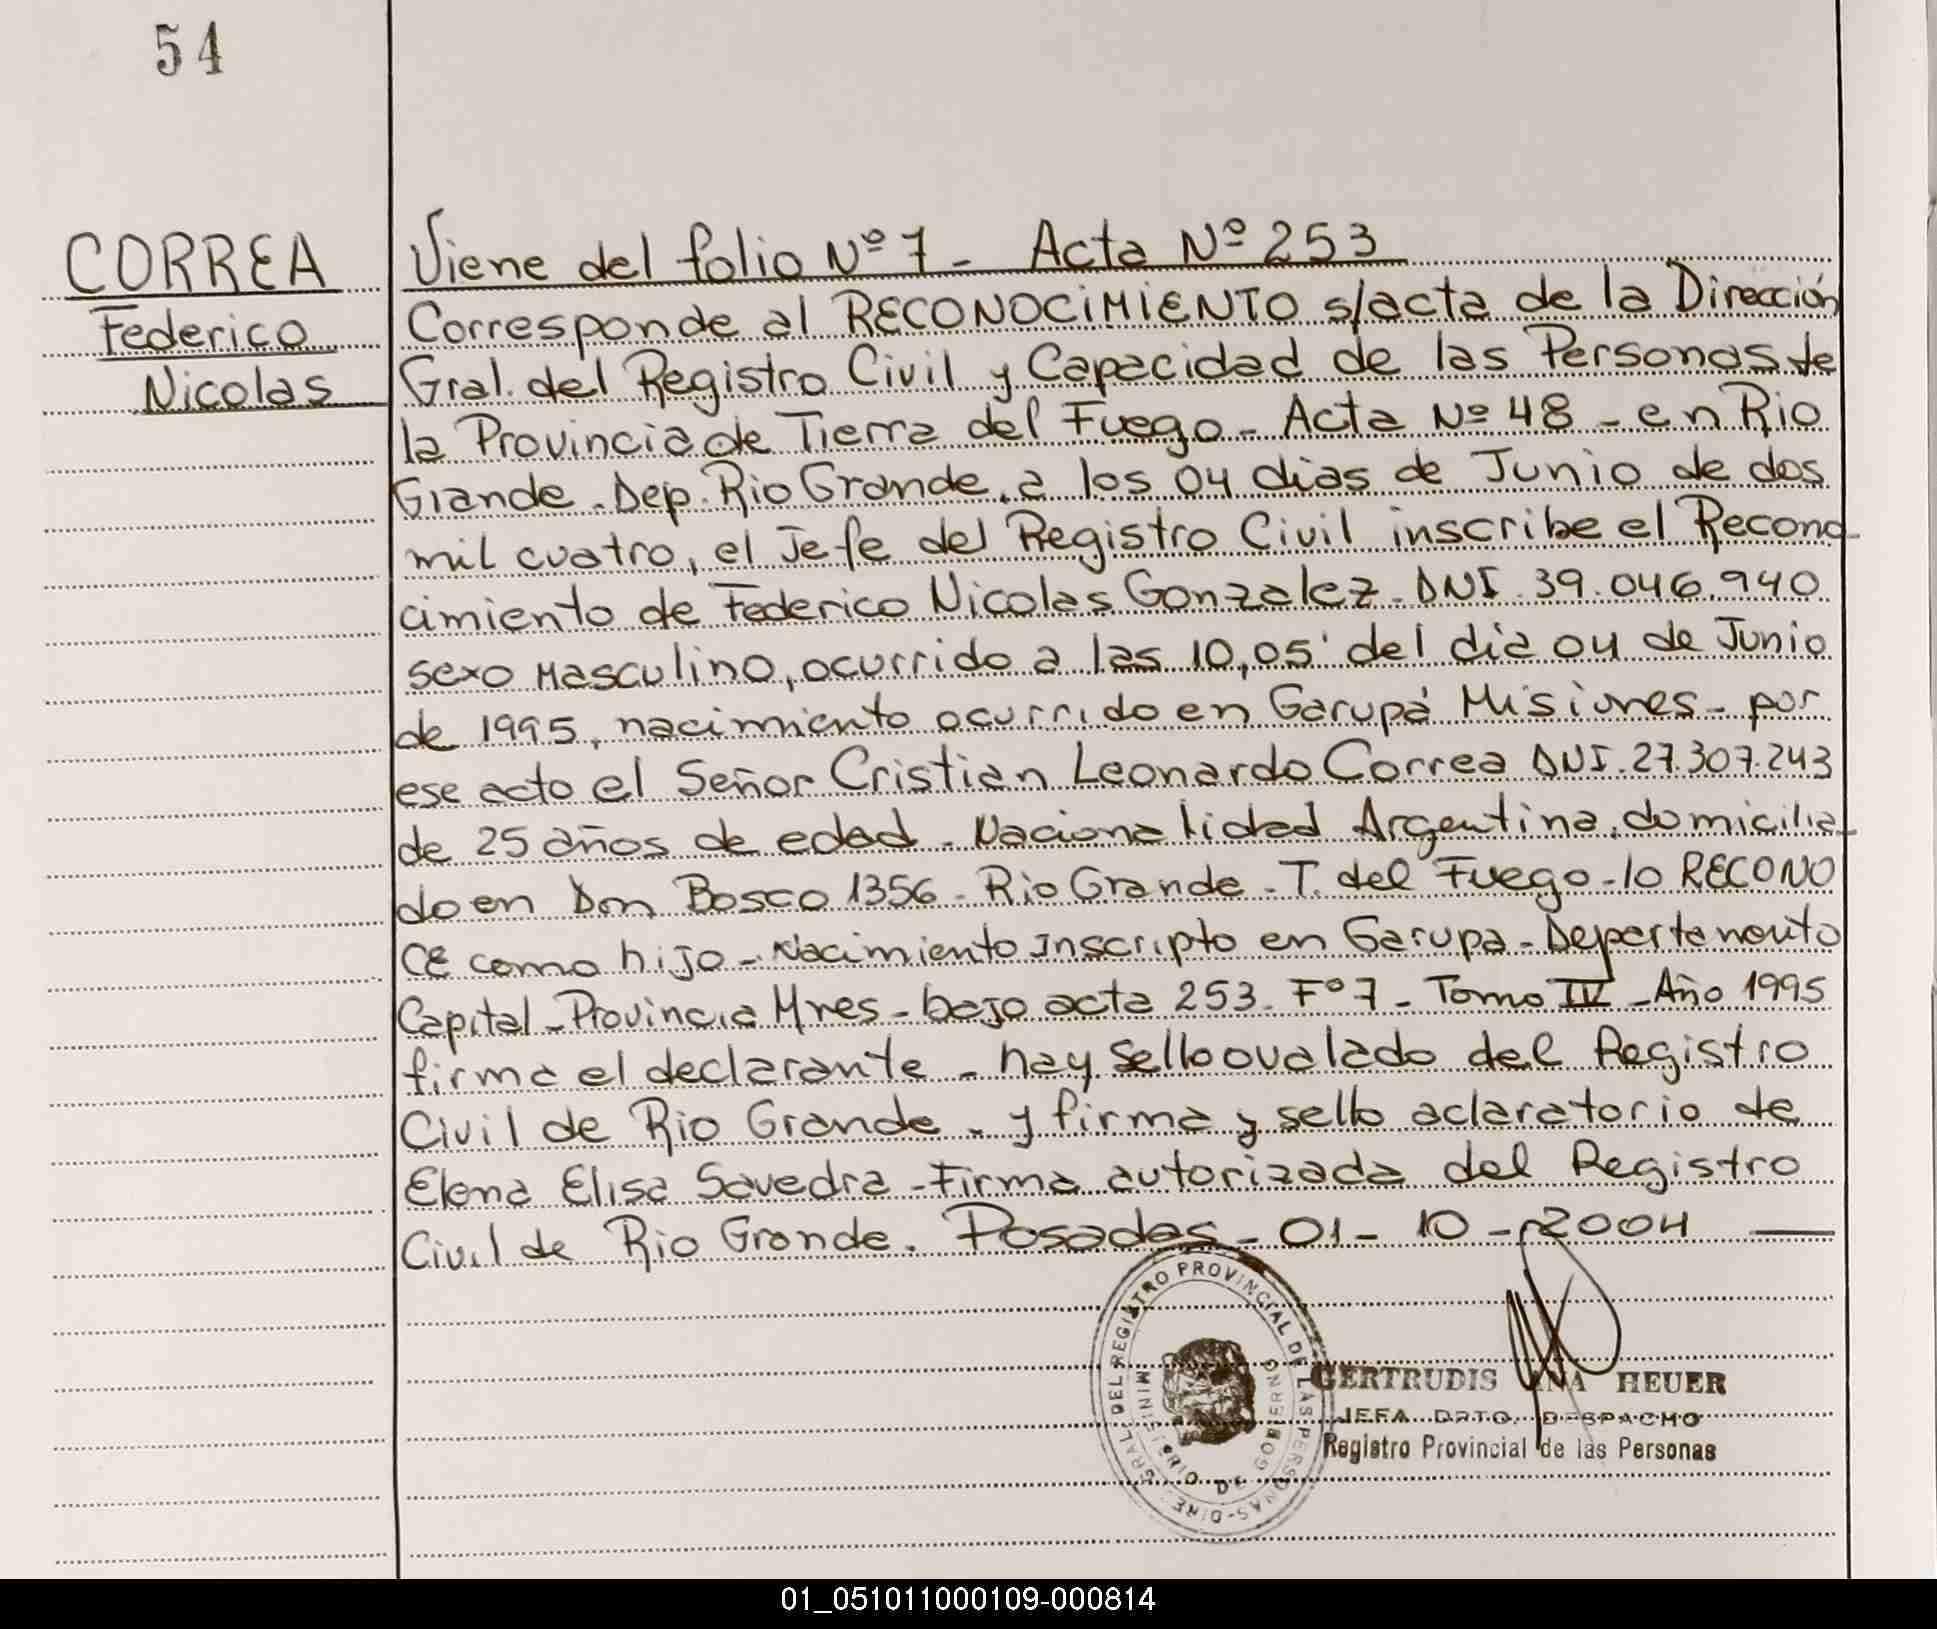 54
CORREA
Federico
Nicolas
Viene del folio Nº 7 - Acta Nº 253
Corresponde al RECONOCIMIENTO s/acta de la Dirección
Gral. del Registro Civil y Capacidad de las Personas de
la Provincia de Tierra del Fuego - Acta Nº 48 - en Rio
Grande - Dep. Rio Grande, a los 04 dias de Junio de dos
mil cuatro, el Jefe del Registro Civil inscribe el Recono-
cimiento de Federico Nicolas Gonzalez - DNI. 39.046.940
sexo Masculino, ocurrido a las 10,05' del dia 04 de Junio
de 1995, nacimiento ocurrido en Garupá Misiones - por
ese acto el Señor Cristian Leonardo Correa DNI. 27.307.243
de 25 años de edad - Nacionalidad Argentina, domicilia-
do en Don Bosco 1356 - Rio Grande - T. del Fuego - lo RECONO
CE como hijo - Nacimiento Inscripto en Garupa - Departamento
Capital - Provincia Mnes - bajo acta 253 - Fº 7 - Tomo IV - Año 1995
firma el declarante - hay Sello ovalado del Registro
Civil de Rio Grande - y firma y sello aclaratorio de
Elena Elisa Savedra - Firma autorizada del Registro
Civil de Rio Grande. Posadas - 01 - 10 - 2004 —
GRAL DEL REGISTRO PROVINCIAL DE LAS PERSONAS - DIRE
MINISTERIO DE GOBIERNO
GERTRUDIS ANA HEUER
JEFA DPTO. DESPACHO
Registro Provincial de las Personas
01_051011000109-000814